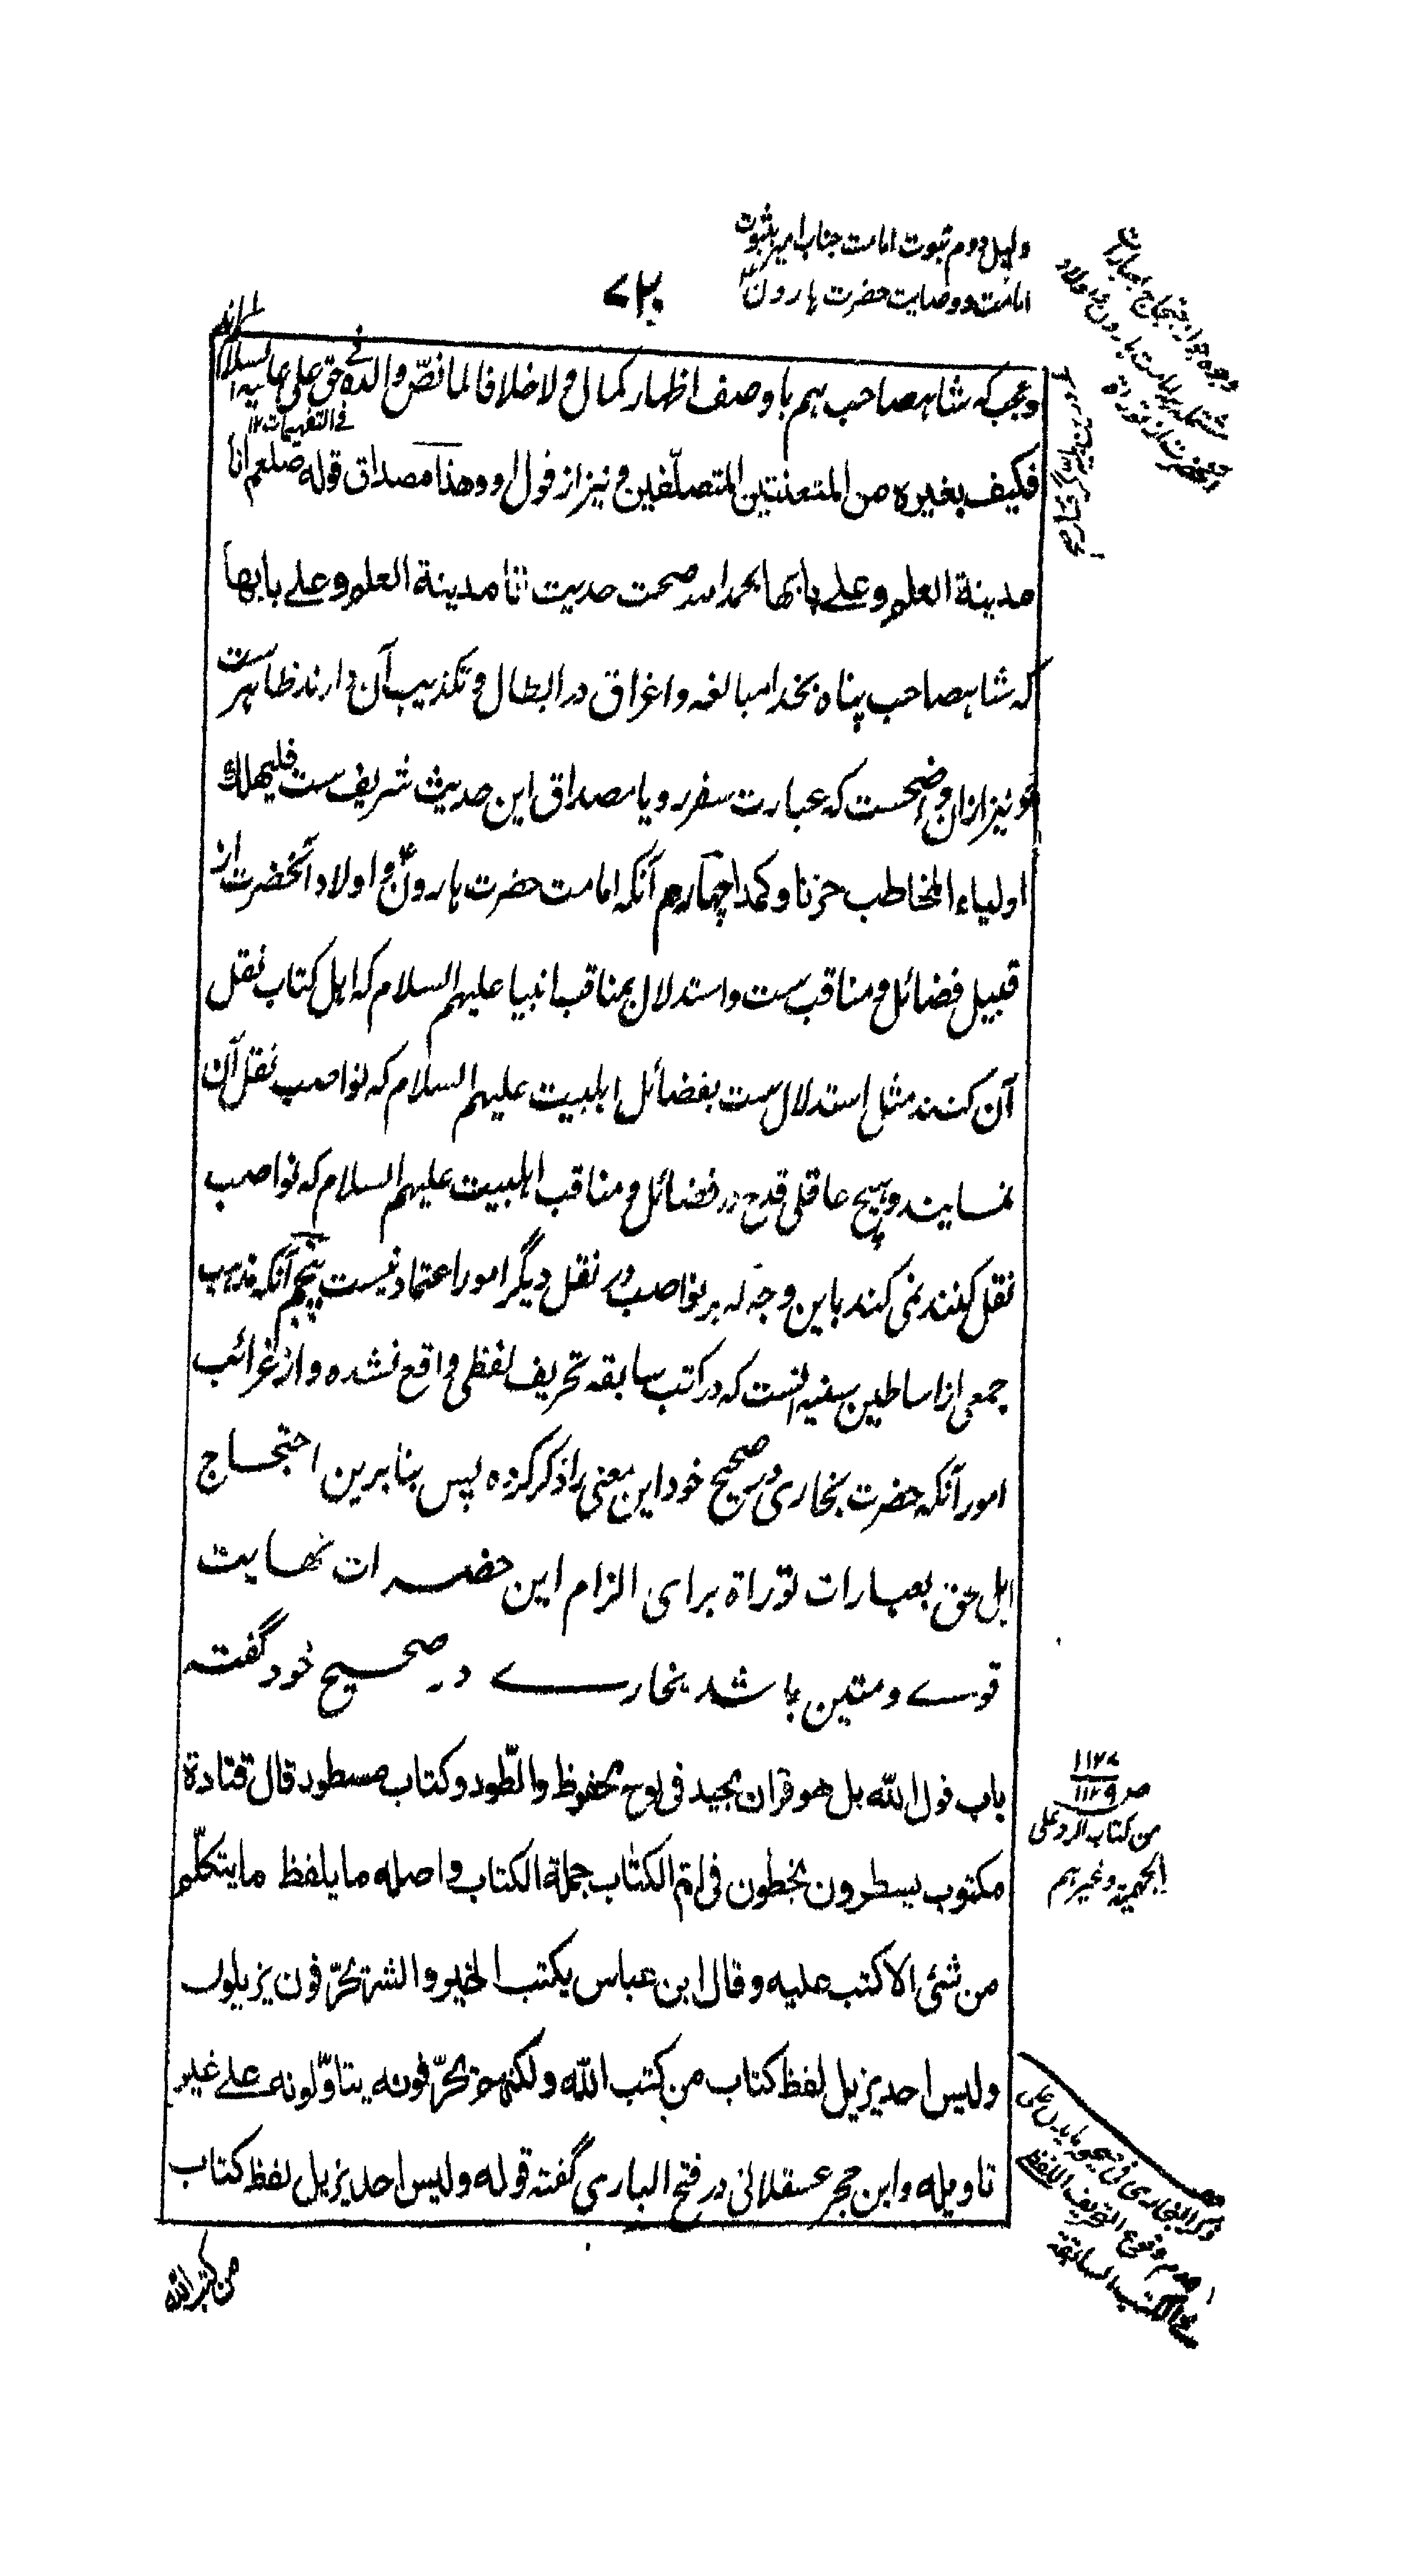 دلیل دوم ثبوت امامت جناب امیر بثبوت
امامت و وصایت حضرت هارون
۷۲۰
وجوه جواز احتجاج بعبارات
مشتمله بر امامت هارون و اولاد
آنحضرت از توراة
وعجب که شاهصاحب هم با وصف اظهار کمال ولا خلافا لما نصّ والده فی حق علی علیه السلام
فی التفهیمات ۱۲
فکیف بغیره من المتعنتین المتصلّفین و نیز از قول او وهذا مصداق قوله صلعم انا
مدینة العلم وعلے بابها بحمد الله صحت حدیث انا مدینة العلم وعلے بابها
که شاهصاحب پناه بخدا مبالغه و اغراق در ابطال و تکذیب آن دارند ظاهر ست
و نیز ازان واضحست که عبارت سفر رویا مصداق این حدیث شریف ست فلیهلك
اولیاء المخاطب حزنا وکمدا چهارم آنکه امامت حضرت هارونؑ و اولاد آنحضرت از
قبیل فضائل و مناقب ست و استدلال بمناقب انبیا علیهم السلام که اهل کتاب نقل
آن کنند مثل استدلال ست بفضائل اهلبیت علیهم السلام که نواصب نقل آن
نمایند و هیچ عاقلی قدح در فضائل و مناقب اهلبیت علیهم السلام که نواصب
نقل کنند نمی کند باین وجه که بر نواصب در نقل دیگر امور اعتماد نیست پنجم آنکه مذهب
جمعی از اساطین سنیه آنست که در کتب سابقه تحریف لفظی واقع نشده و از غرائب
امور آنکه حضرت بخاری در صحیح خود این معنی را ذکر کرده پس بنابرین احتجاج
اهل حق بعبارات توراة برای الزام این حضرات نهایت
قوے و متین باشد بخارے در صحیح خود گفته
باب قول الله بل هو قران مجید فی لوح محفوظ والطّور وکتاب مسطور قال قتادة
مکتوب یسطرون یخطّون فی امّ الکتاب جملة الکتاب و اصله ما یلفظ ما یتکلّم
من شئ الا کتب علیه وقال ابن عباس یکتب الخیر والشر یحرّفون یزیلون
ولیس احد یزیل لفظ کتاب من کتب الله ولکنهم یحرّفونه یتاوّلونه علے غیر
تاویله و ابن حجر عسقلانی در فتح الباری گفته قوله ولیس احد یزیل لفظ کتاب
۱۱۲۷
ص ۱۱۲۹
من کتاب الرد علی
الجهمیة وغیرهم
ذکر البخاری فی صحیحه ما یدل علی
عدم وقوع التحریف اللفظی
فی الکتب السابقة
من کتب الله